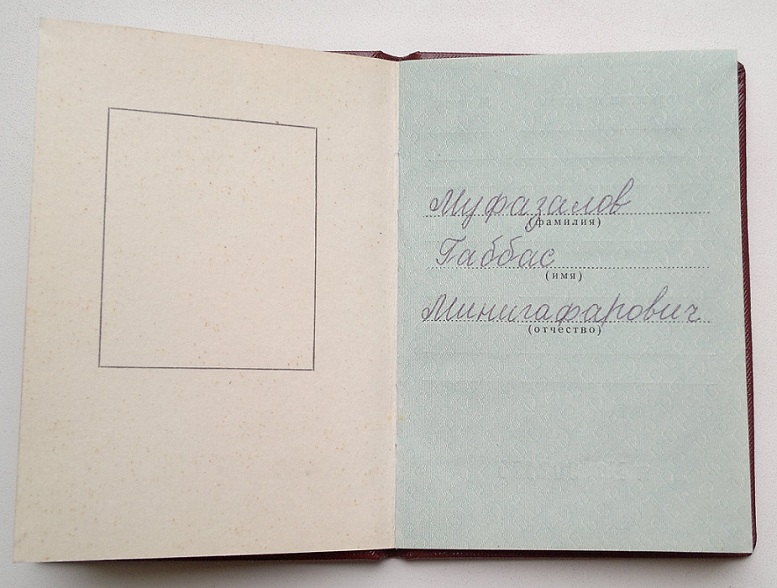 Муфазалов
(фамилия)
Габбас
(имя)
Минигафарович
(отчество)